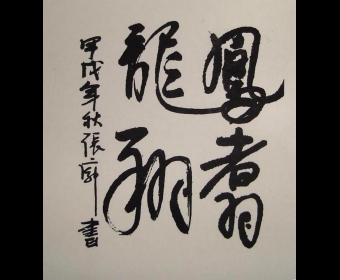 鳳翥
龍翔
甲戌年秋張㢧書